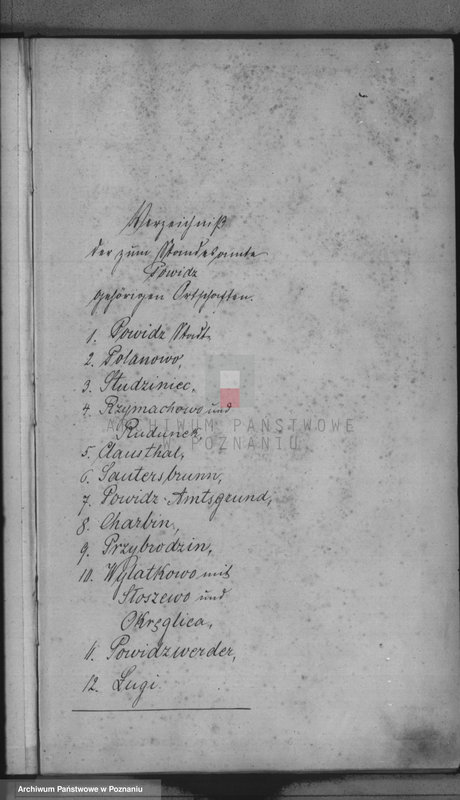 Verzeichniß
der zum Standesamte
Powidz
gehörigen Ortschaften.
1. Powidz Stadt.
2. Polanowo,
3. Studziniec,
4. Rzymachowo und
Rudunek,
5. Clausthal,
6. Sautersbrunn,
7. Powidz-Amtsgrund,
8. Charbin,
9. Przybrodzin,
10. Wylatkowo mit
Słoszewo und
Okręglica,
11. Powidzwerder,
12. Ługi.
ARCHIWUM PAŃSTWOWE
W POZNANIU
Archiwum Państwowe w Poznaniu